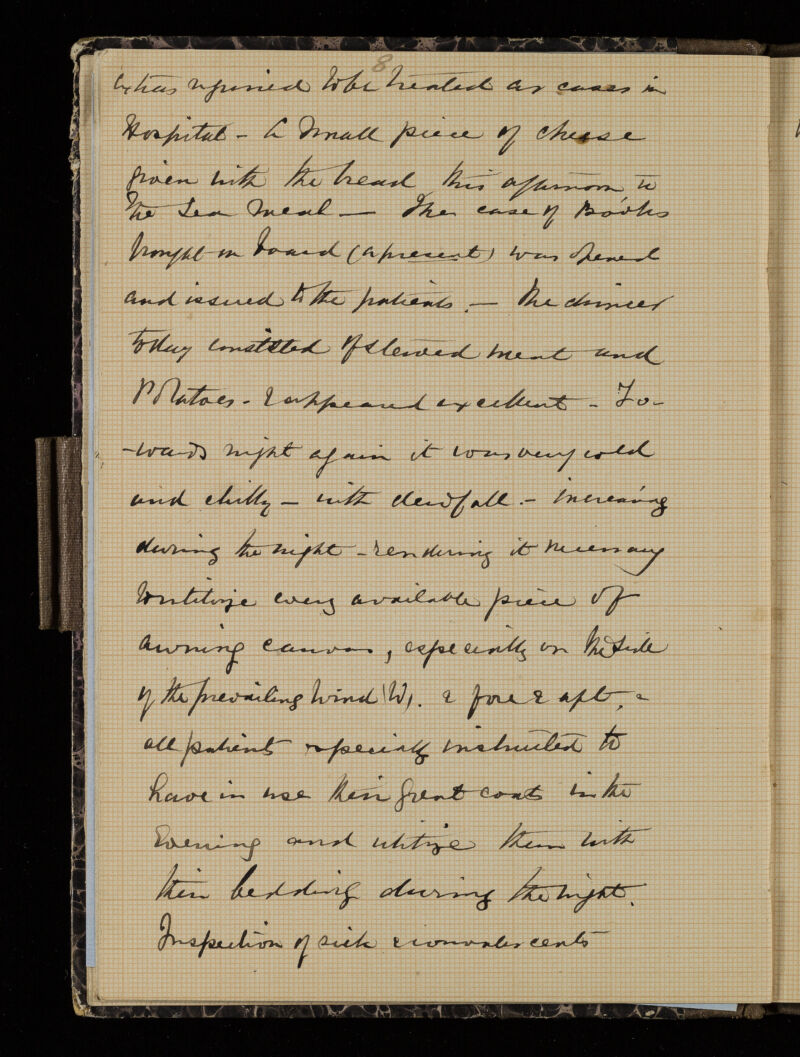 8
extras required to be treated as cases in
Hospital - A small piece of cheese
given with the bread this afternoon to
the Tea meal — The case of Books
brought on board (a present) was opened
and issued to the patients. — The dinner
today consisted of stewed meat and
Potatoes - & appeared excellent - To-
-wards night again it was very cold
and chilly - with dewfall - increasing
during the night - rendering it necessary
to utilize every available piece of
awning canvas, especially on the side
of the prevailing wind (W). & fore & aft, &
all patients specially instructed to
have in use their great coats in the
Evening and utilize them with
their bedding during the night.
Inspection of sick & convalescents